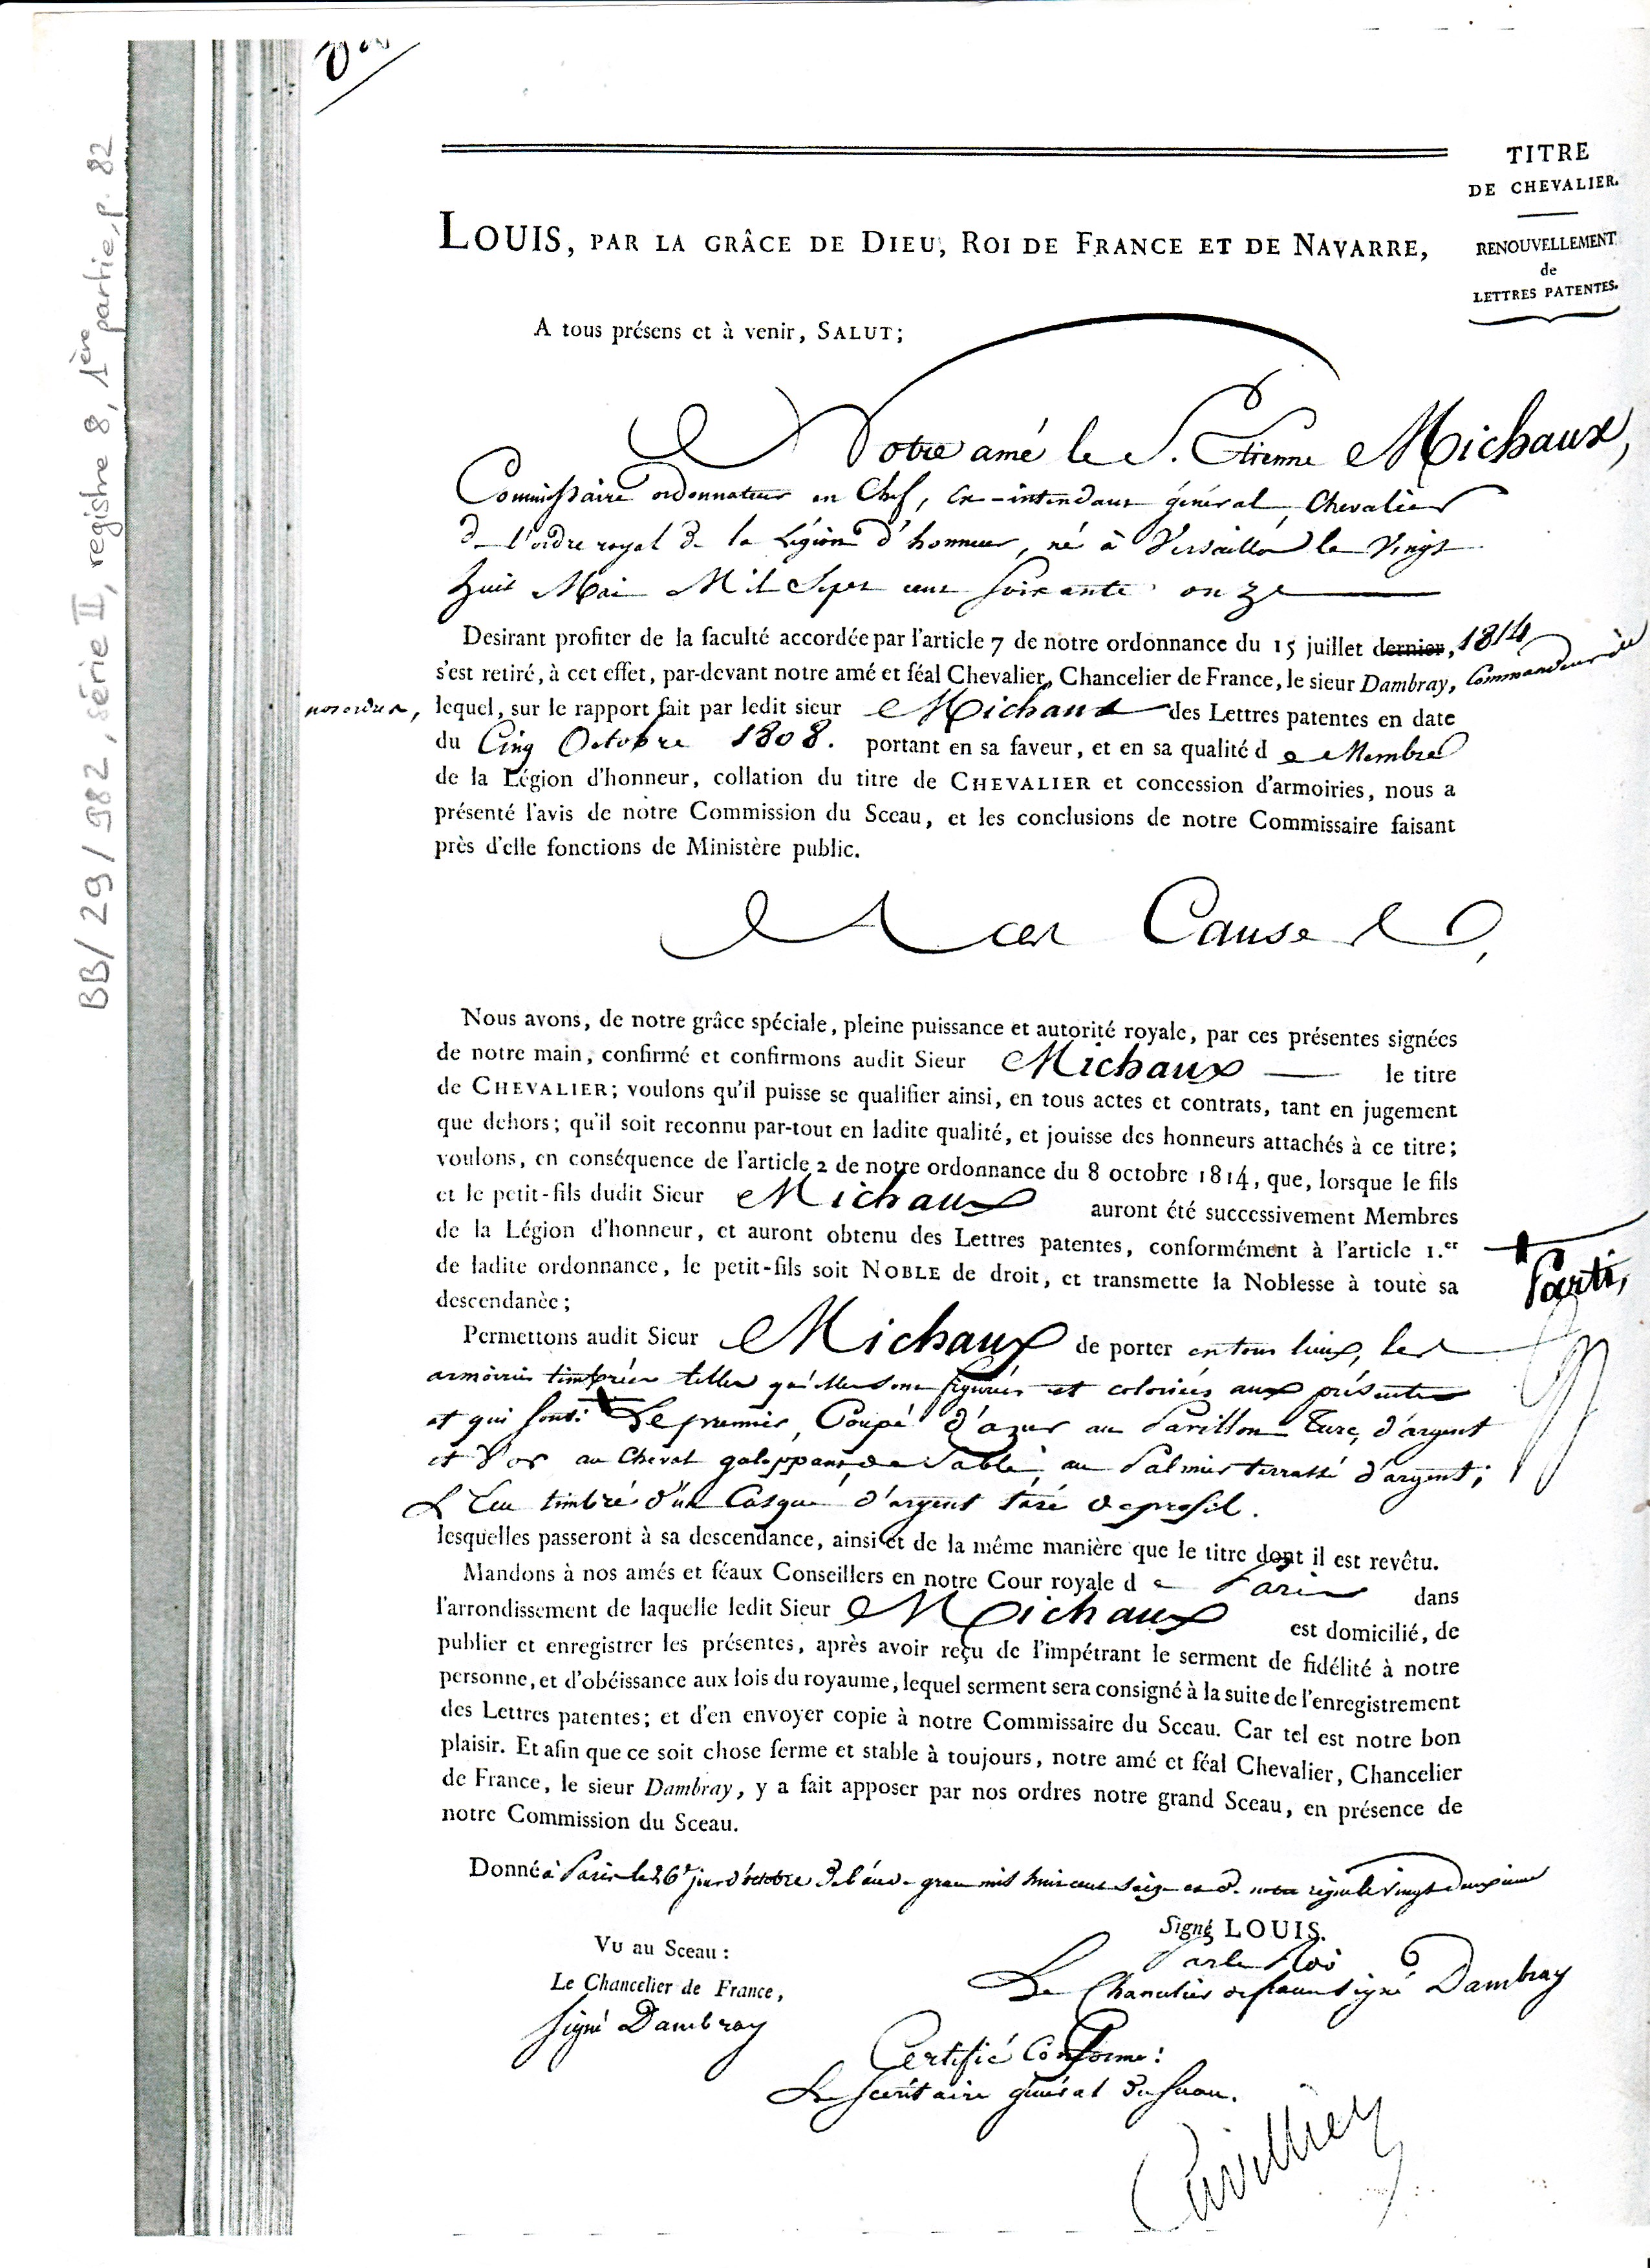 BB/29/982, série II, registre 8, 1ère partie, p. 82
TITRE
DE CHEVALIER.
RENOUVELLEMENT
de
LETTRES PATENTES.
LOUIS, PAR LA GRÂCE DE DIEU, ROI DE FRANCE ET DE NAVARRE,
A tous présens et à venir, SALUT;
Notre amé le S. Etienne Michaux,
Commissaire ordonnateur en Chef, ex-intendant général, Chevalier
de l'ordre royal de la Légion d'honneur, né à Versailles le Vingt
huit Mai Mil Sept cent soixante onze
Desirant profiter de la faculté accordée par l'article 7 de notre ordonnance du 15 juillet dernier, 1814
s'est retiré, à cet effet, par-devant notre amé et féal Chevalier, Chancelier de France, le sieur Dambray, Commandeur de
nos ordres, lequel, sur le rapport fait par ledit sieur Michaux des Lettres patentes en date
du Cinq Octobre 1808. portant en sa faveur, et en sa qualité de Membre
de la Légion d'honneur, collation du titre de CHEVALIER et concession d'armoiries, nous a
présenté l'avis de notre Commission du Sceau, et les conclusions de notre Commissaire faisant
près d'elle fonctions de Ministère public.
A ces Causes,
Nous avons, de notre grâce spéciale, pleine puissance et autorité royale, par ces présentes signées
de notre main, confirmé et confirmons audit Sieur Michaux le titre
de CHEVALIER; voulons qu'il puisse se qualifier ainsi, en tous actes et contrats, tant en jugement
que dehors; qu'il soit reconnu par-tout en ladite qualité, et jouisse des honneurs attachés à ce titre;
voulons, en conséquence de l'article 2 de notre ordonnance du 8 octobre 1814, que, lorsque le fils
et le petit-fils dudit Sieur Michaux auront été successivement Membres
de la Légion d'honneur, et auront obtenu des Lettres patentes, conformément à l'article 1.er
de ladite ordonnance, le petit-fils soit NOBLE de droit, et transmette la Noblesse à toute sa
descendance;
Parti,
Permettons audit Sieur Michaux de porter en tous lieux, les
armoiries timbrées telles qu'elles sont figurées et coloriées aux présentes
et qui sont: Le premier, Coupé d'azur au Pavillon Turc, d'argent
et d'or au Cheval galoppant, de Sable, au Palmier terrassé d'argent;
L'Ecu timbré d'un Casque d'argent taré de profil.
lesquelles passeront à sa descendance, ainsi et de la même manière que le titre dont il est revêtu.
Mandons à nos amés et féaux Conseillers en notre Cour royale de Paris dans
l'arrondissement de laquelle ledit Sieur Michaux est domicilié, de
publier et enregistrer les présentes, après avoir reçu de l'impétrant le serment de fidélité à notre
personne, et d'obéissance aux lois du royaume, lequel serment sera consigné à la suite de l'enregistrement
des Lettres patentes; et d'en envoyer copie à notre Commissaire du Sceau. Car tel est notre bon
plaisir. Et afin que ce soit chose ferme et stable à toujours, notre amé et féal Chevalier, Chancelier
de France, le sieur Dambray, y a fait apposer par nos ordres notre grand Sceau, en présence de
notre Commission du Sceau.
Donné à Paris le 26e jour d'octobre de l'an de grace mil huit cent seize et de notre règne le vingt deuxième
Signé LOUIS.
Vu au Sceau:
Par le Roi
Le Chancelier de France,
Le Chancelier de france signé Dambray
signé Dambray
Certifié Conforme:
Le Secrétaire général du sceau.
Cuvillier